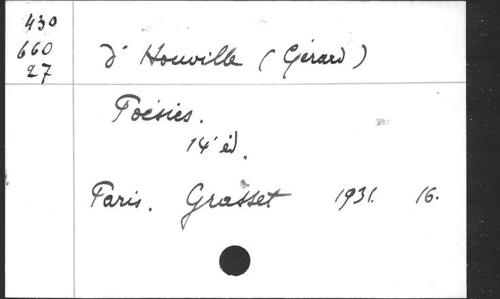 430
660
27
d' Houville (Gérard)
Poésies.
14' éd.
Paris. Grasset 1931. 16.